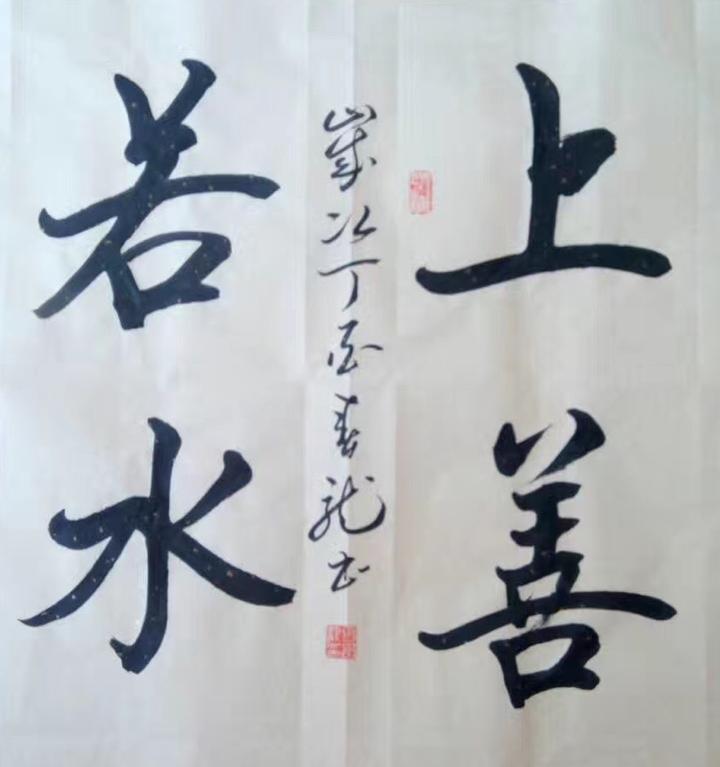 上善
若水
歲次丁酉春龙书